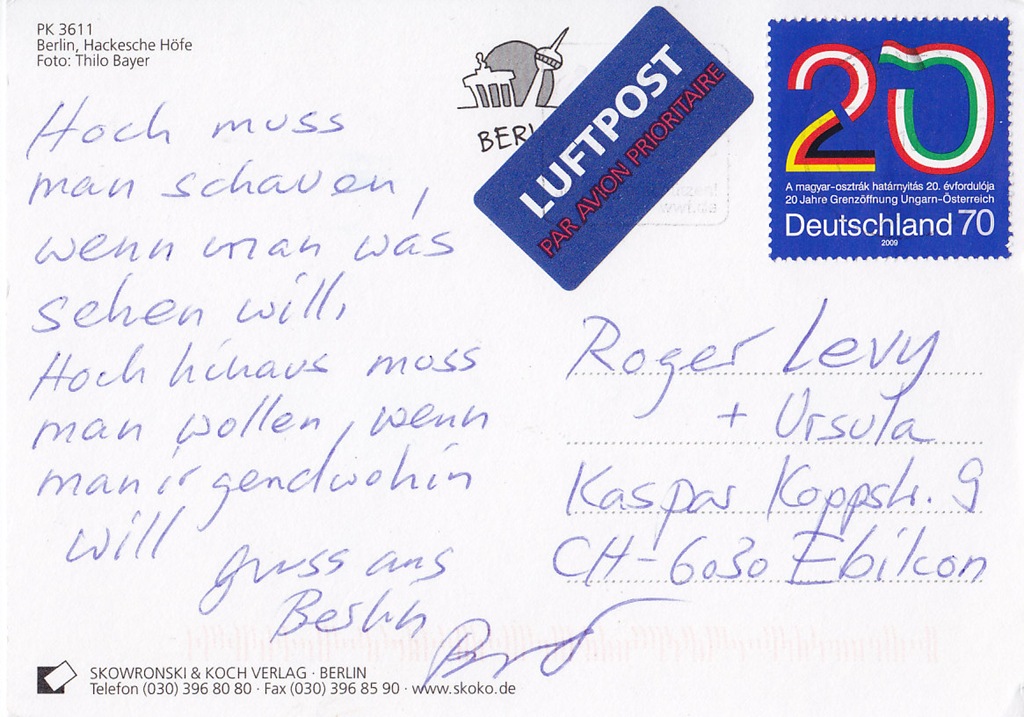 PK 3611
Berlin, Hackesche Höfe
Foto: Thilo Bayer
Hoch muss
man schauen,
wenn man was
sehen will,
Hoch hinaus muss
man wollen, wenn
man irgendwohin
will
gruss aus
Berlin
BERL
LUFTPOST
PAR AVION PRIORITAIRE
20
A magyar-osztrák határnyitás 20. évfordulója
20 Jahre Grenzöffnung Ungarn-Österreich
Deutschland 70
2009
Roger Levy
+ Ursula
Kaspar Koppstr. 9
CH-6030 Ebikon
SKOWRONSKI & KOCH VERLAG · BERLIN
Telefon (030) 396 80 80 · Fax (030) 396 85 90 · www.skoko.de